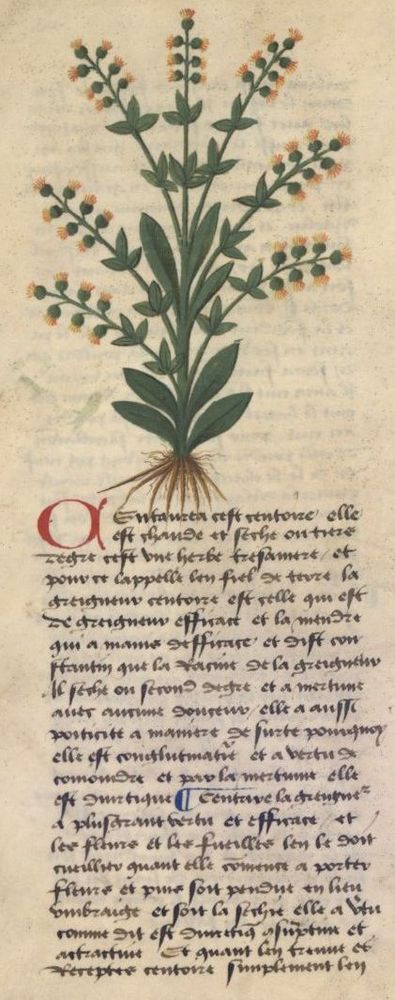 Centaurea cest centoire elle
est chaude et seche ou tiers
degre cest une herbe tresamere et
pour ce lappelle len fiel de terre la
greigneur centoire est celle qui est
de greigneur efficace et la mendre
qui a mains defficace et dist con
stantin que la Racine de la greigneur
Il seche ou second degre et a mertume
avec aucune douceur elle a aussi
ponticite a maniere de surte pourquoy
elle est conglutinatiue et a vertu de
conioindre et par la mertume elle
est diuretique Centoire la greigneur
a plusgrant vertu et efficace et
les fleurs et les fueilles len le doit
cueillier quant elle comence a porter
fleurs et puis soit pendue en lieu
umbraige et soit la sechie elle a vtu
comme dit est diureticq
attractiue Et quant len treuue es
Receptes centoire simplement len